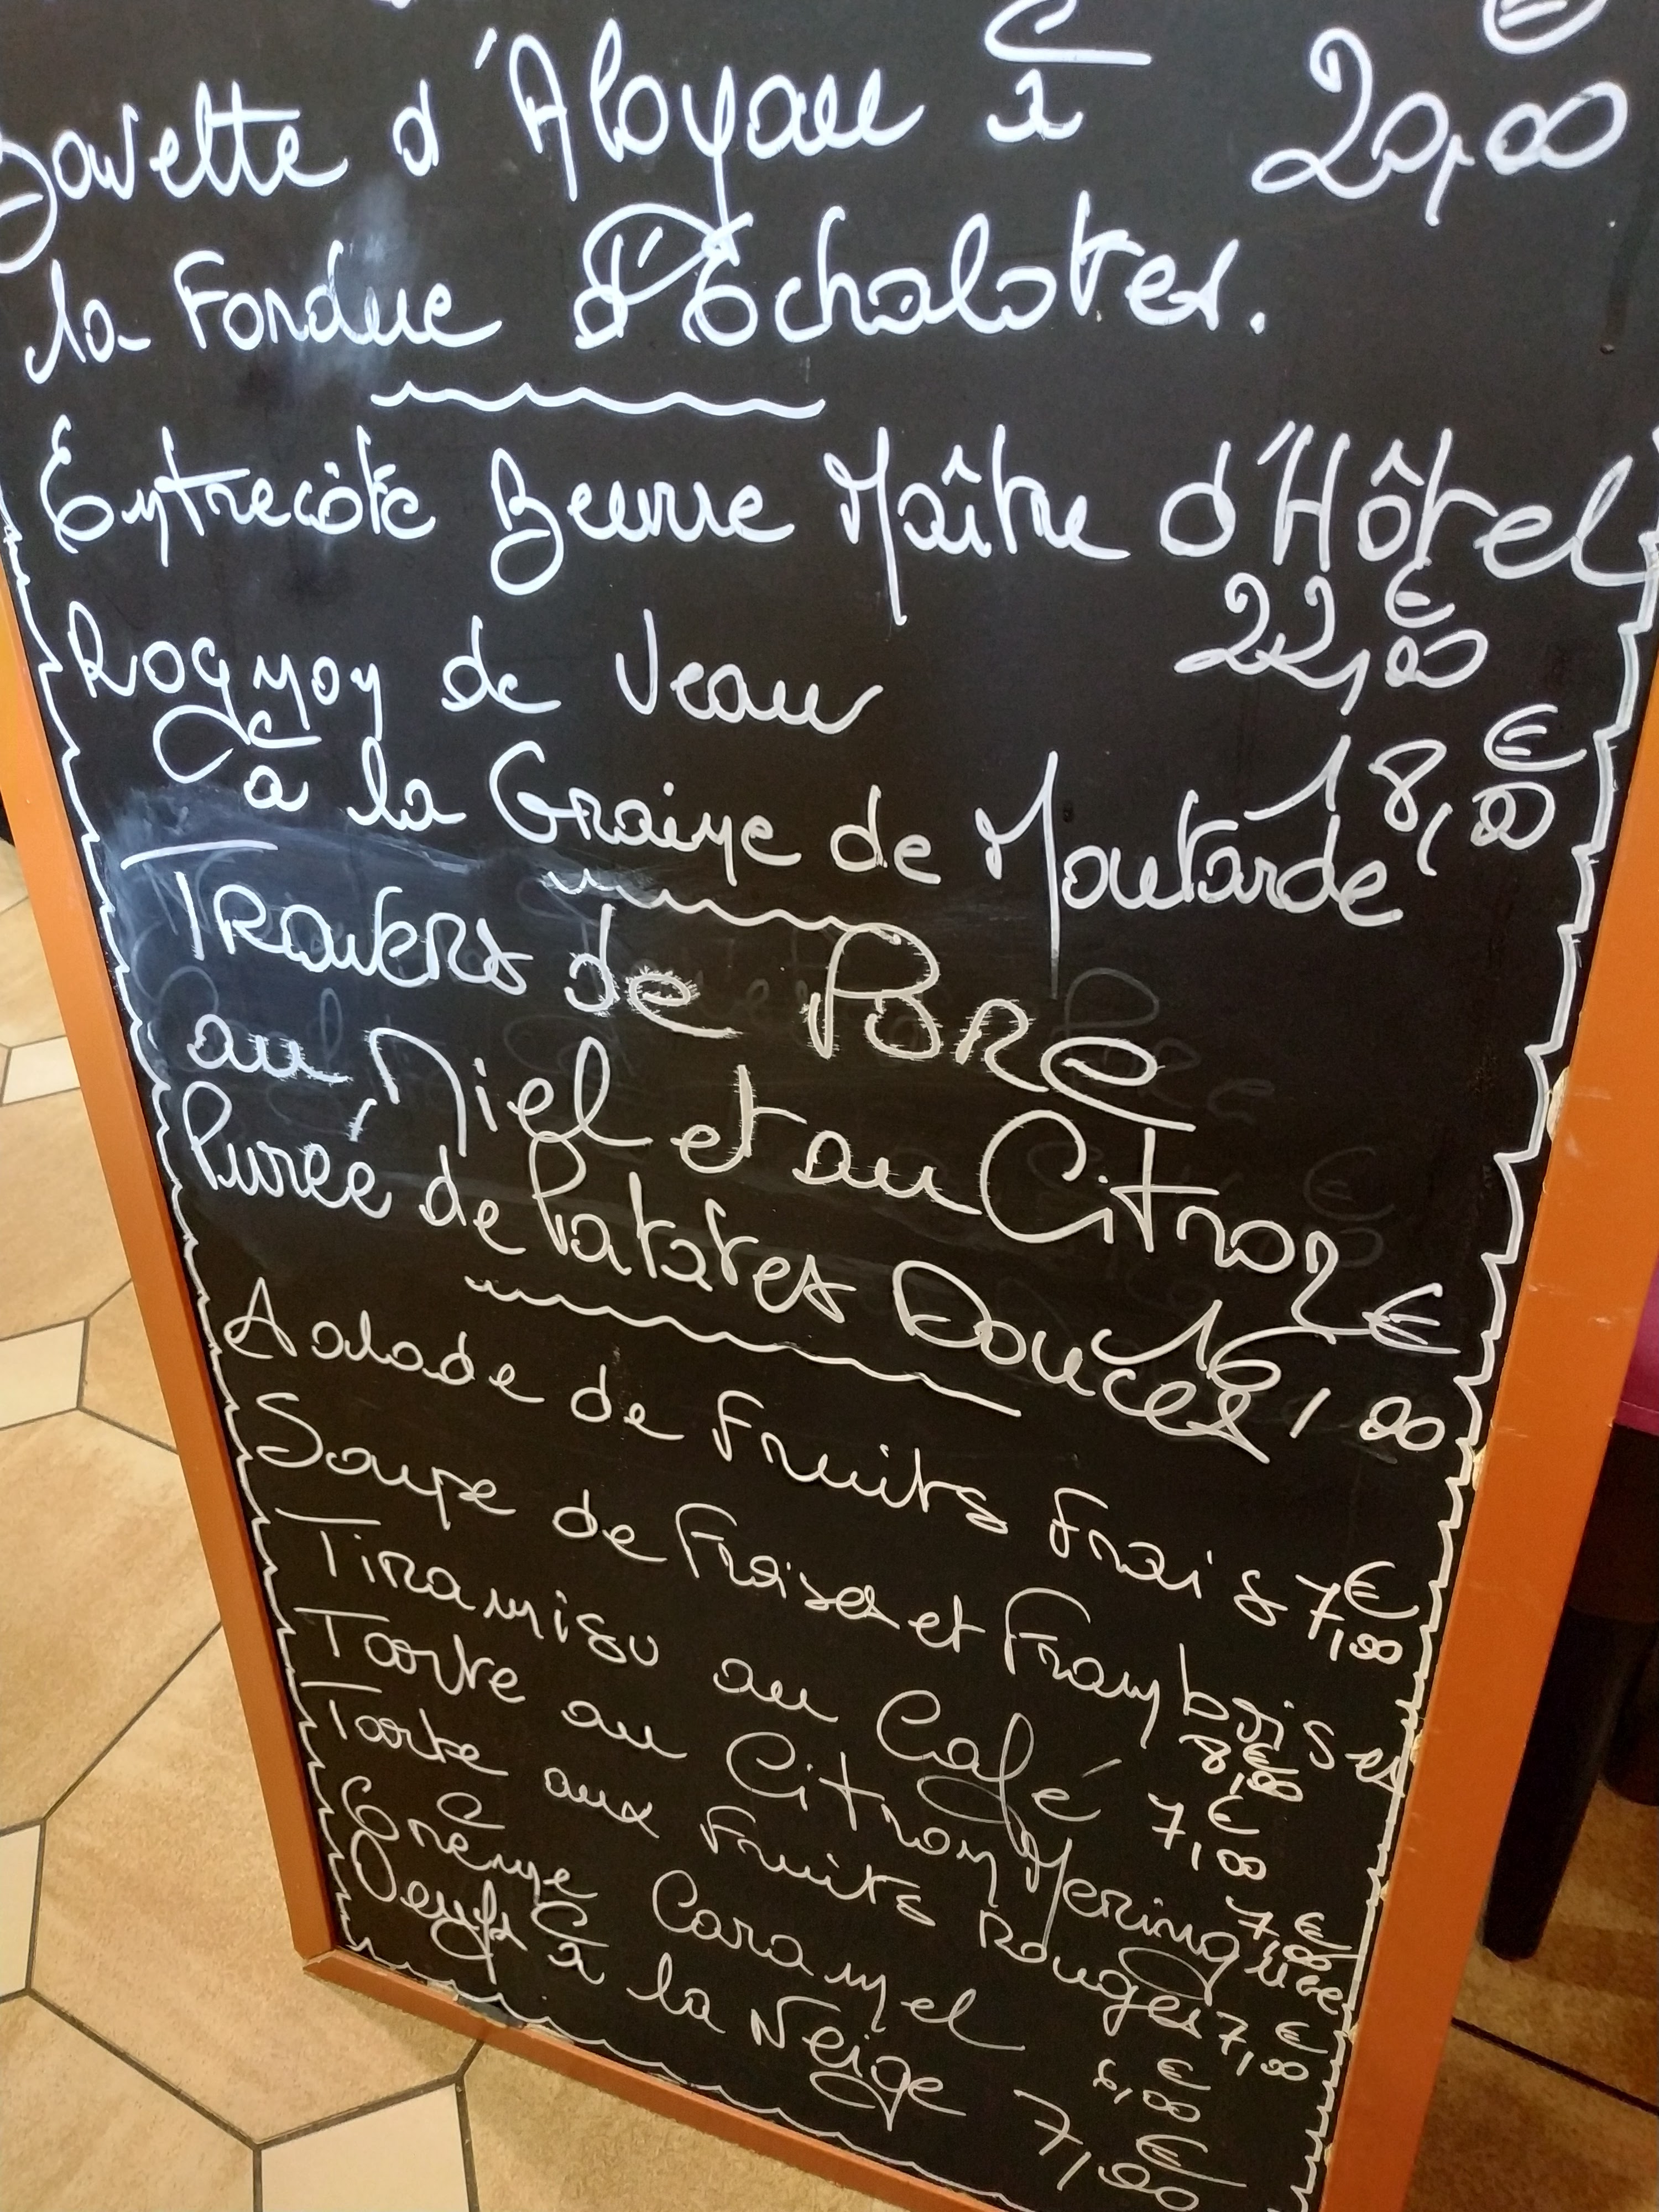 Bavette d'Aloyau à 20,00 €
la Fondue d'Echalotes.
Entrecôte Beurre Maître d'Hôtel
22,00 €
Rognon de Veau
à la Graine de Moutarde 18,00 €
Travers de Porc
au Miel et au Citron
Purée de Patates Douces 16,00 €
Salade de Fruits Frais 7,00 €
Soupe de Fraises et Framboises
8,00 €
Tiramisu au Café 7,00 €
Tarte au Citron Meringuée 7,00 €
Tarte aux Fruits Rouges 7,00 €
Crème Caramel 6,00 €
Oeufs à la Neige 7,00 €